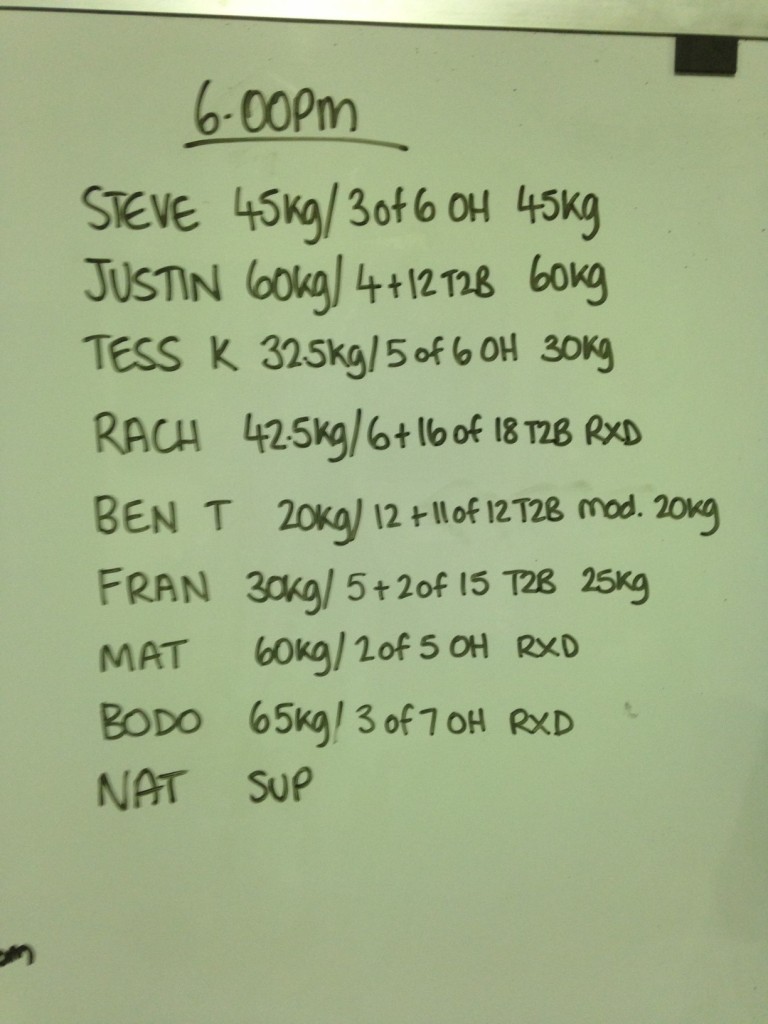 6.00Pm
STEVE 45kg/3 of 6 OH 45kg
JUSTIN 60kg/ 4+12 T2B 60kg
TESS K 32.5kg/5 of 6 OH 30kg
RACH 42.5kg/6+16 of 18 T2B RXD
BEN T 20kg/ 12 +11 of 12 T2B mod. 20kg
FRAN 30kg/ 5+2 of 15 T2B 25kg
MAT 60kg/ 2 of 5 OH RXD
BODO 65kg/ 3 of 7 OH RXD
NAT SUP